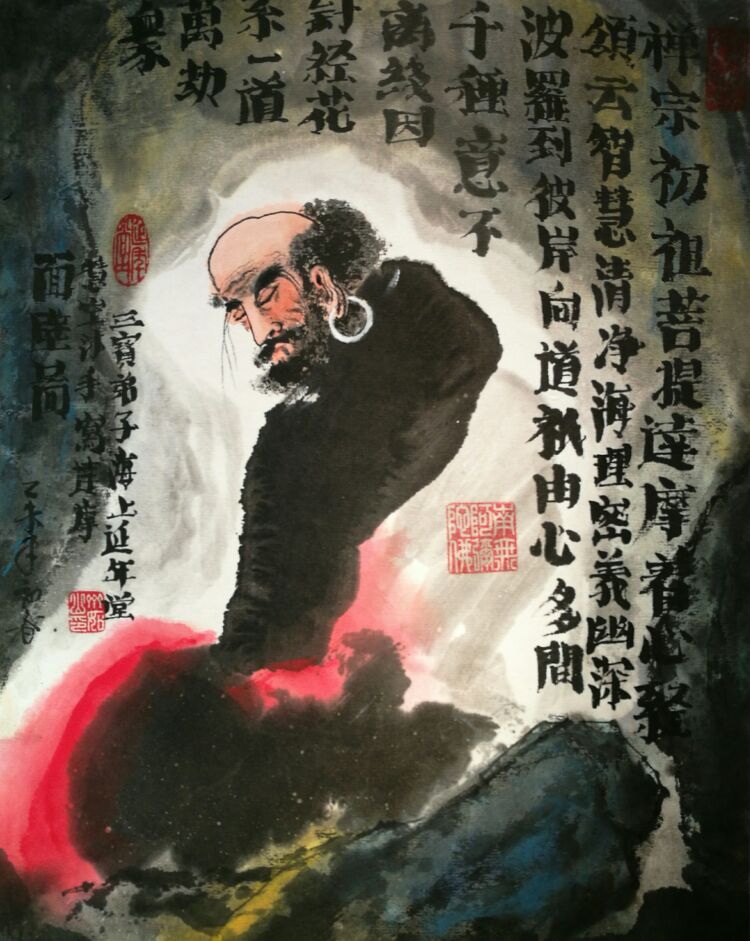 禅宗初祖菩提達摩着心経
頌云智慧清净海理密義幽深
波羅到彼岸向道祇由心多間
千種意不
离线因
針経花
系一道
萬劫
衆
南無阿彌陀佛
三寳弟子海上延年堂
手寫達摩
面
乙未年初春